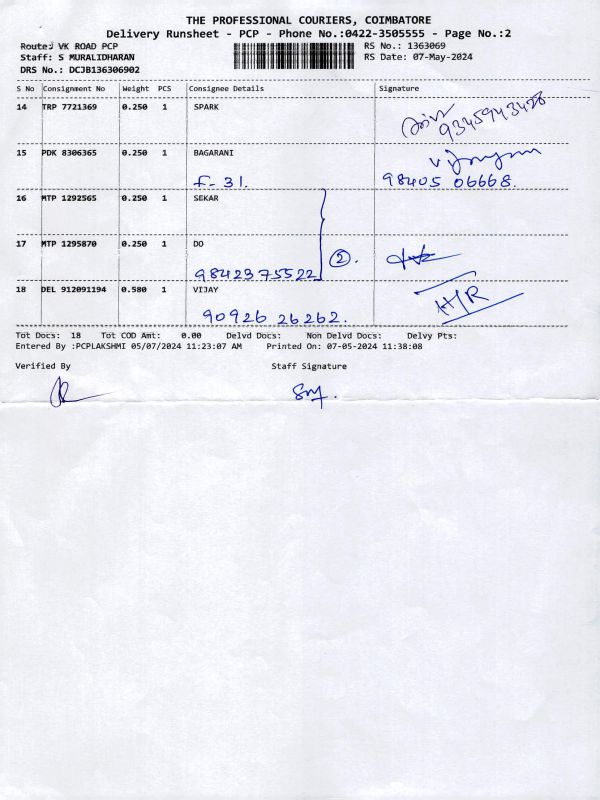 THE PROFESSIONAL COURIERS, COIMBATORE
Delivery Runsheet - PCP - Phone No.:0422-3505555 - Page No.:2
Route: VK ROAD PCP
Staff: S MURALIDHARAN
DRS No.: DCJB136306902
RS No.: 1363069
RS Date: 07-May-2024
S No Consignment No Weight PCS Consignee Details Signature
14 TRP 7721369 0.250 1 SPARK
15 PDK 8306365 0.250 1 BAGARANI
F-31. 98405 06668.
16 MTP 1292565 0.250 1 SEKAR
17 MTP 1295870 0.250 1 DO
9842375522 2
18 DEL 912091194 0.580 1 VIJAY
90926 26262. H/R
Tot Docs: 18 Tot COD Amt: 0.00 Delvd Docs: Non Delvd Docs: Delvy Pts:
Entered By :PCPLAKSHMI 05/07/2024 11:23:07 AM Printed On: 07-05-2024 11:38:08
Verified By Staff Signature